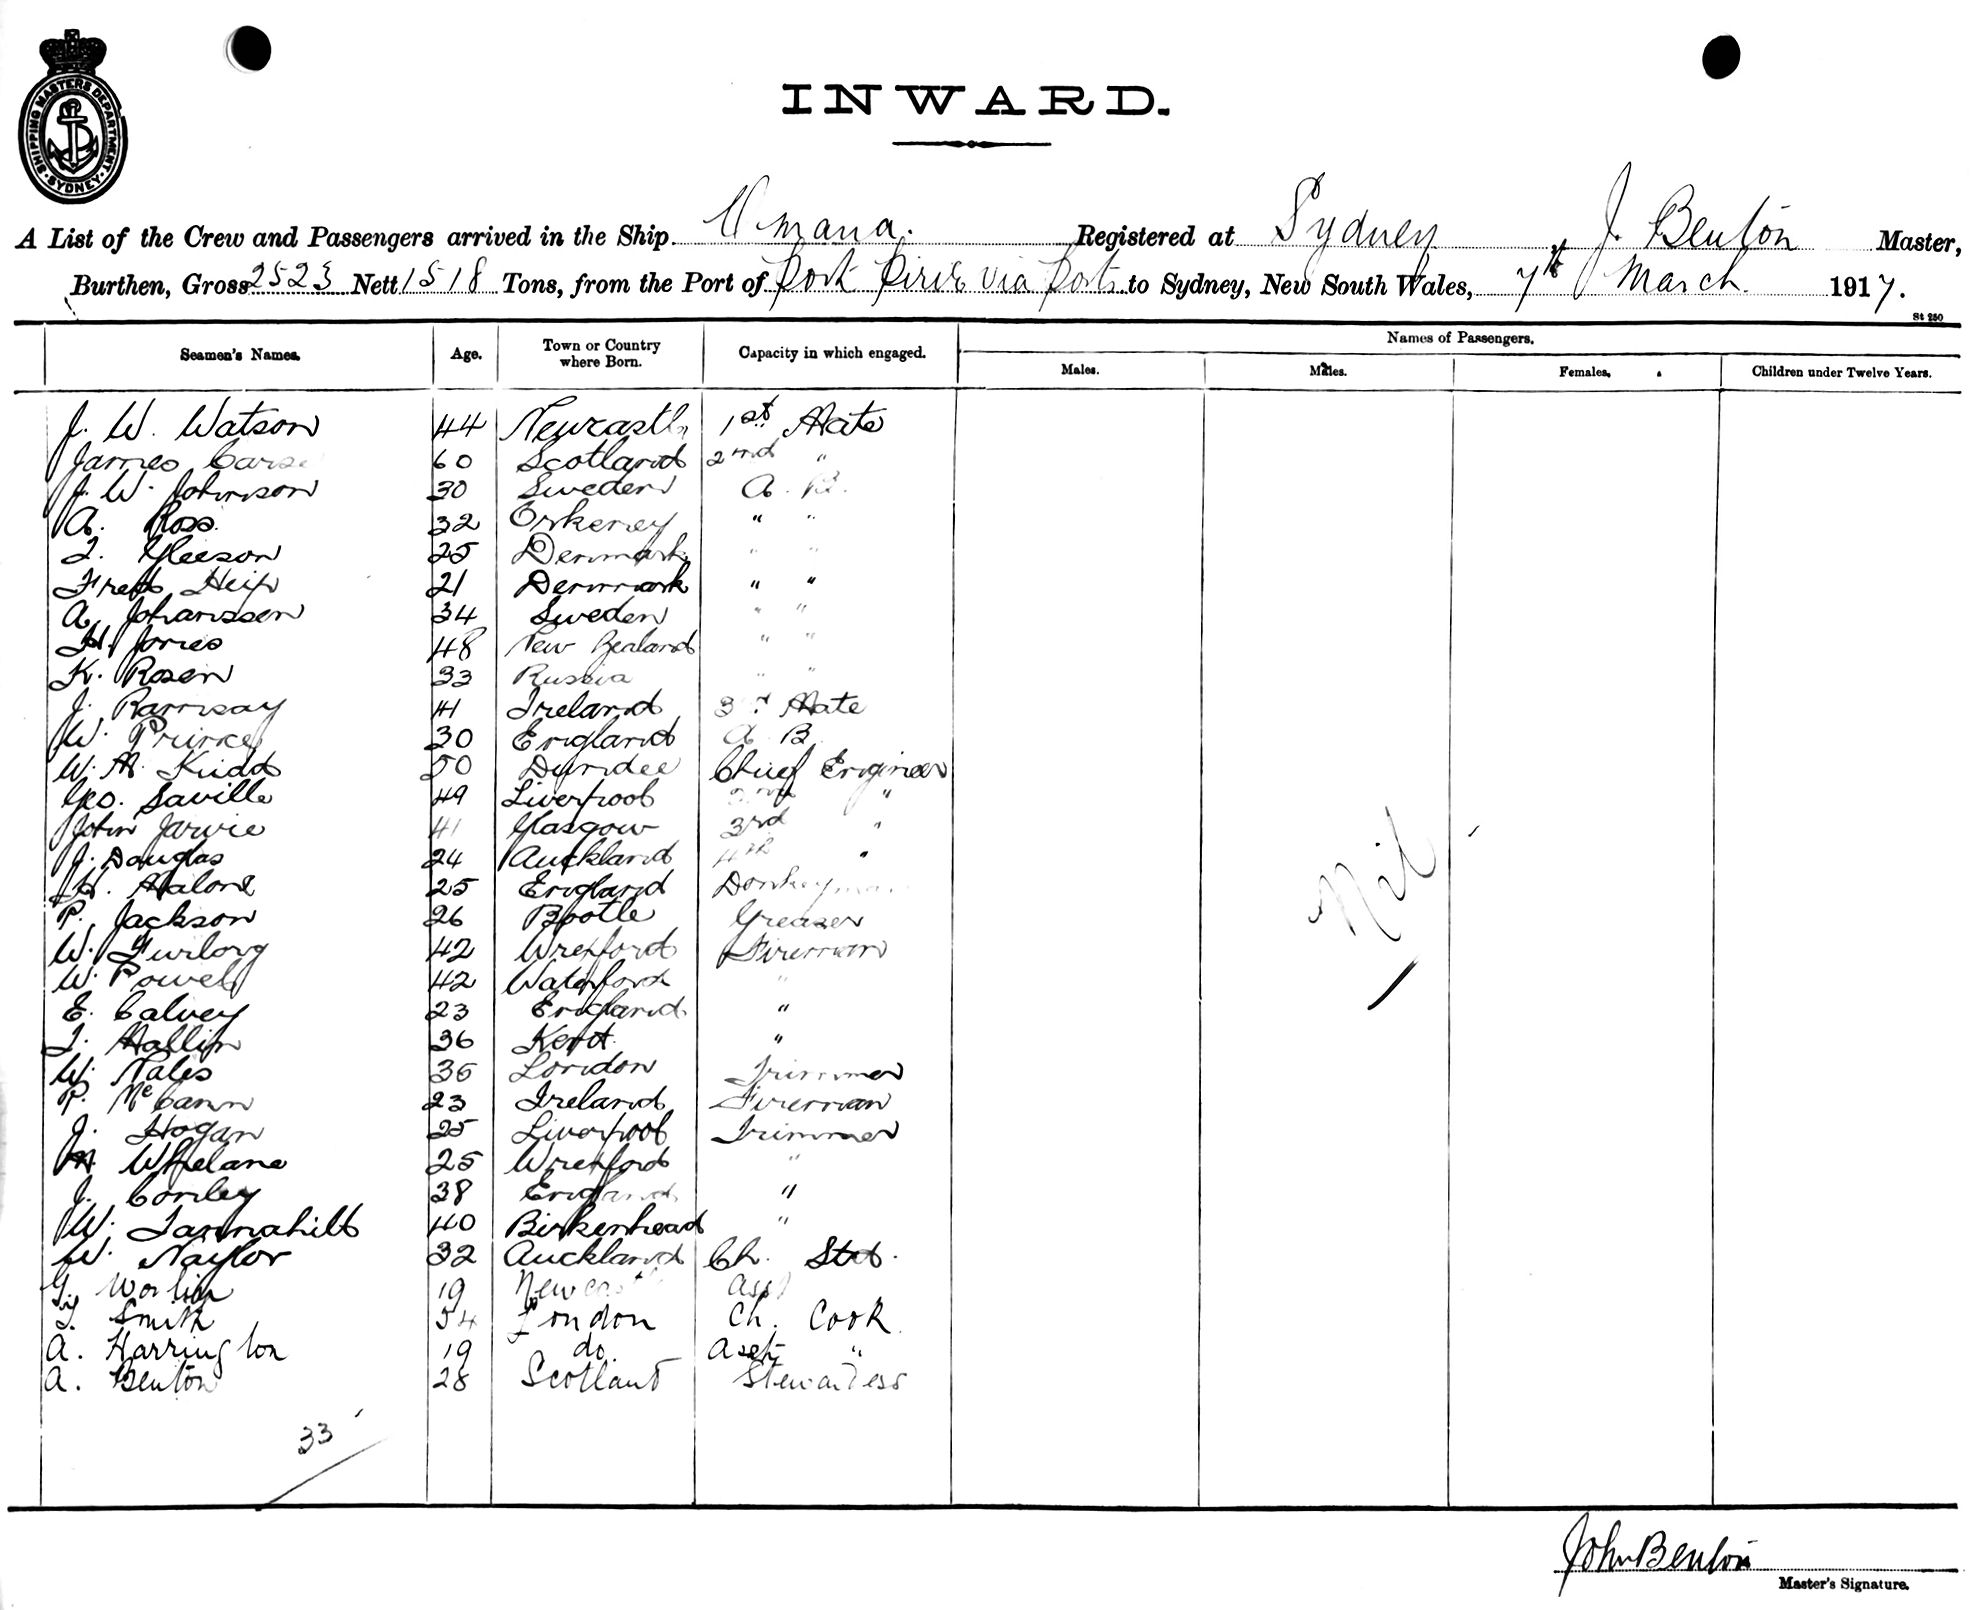 SHIPPING MASTERS DEPARTMENT
SYDNEY
INWARD.
A List of the Crew and Passengers arrived in the Ship Urmana. Registered at Sydney, J. Benton Master,
Burthen, Gross 2523 Nett 1518 Tons, from the Port of Port Pirie via Ports to Sydney, New South Wales, 7th March. 1917.
St 250
Seamen's Names. Age. Town or Country where Born. Capacity in which engaged. Names of Passengers.
Males. Males. Females. Children under Twelve Years.
J. W. Watson 44 Newcastle 1st Mate
James Carse 60 Scotland 2nd "
J. W. Johnson 30 Sweden A. B.
A. Ross. 32 Orkeney " "
T. Gleeson 25 Denmark " "
Fred Heip 21 Denmark " "
A. Johanssen 34 Sweden " "
H. Jones 48 New Zealand " "
K. Rosen 33 Russia " "
J. Ramsay 41 Ireland 3rd Mate
W. Prince 30 England A B
W. M. Kidd 50 Dundee Chief Engineer
Geo. Saville 49 Liverpool 2nd "
John Jarvie 41 Glasgow 3rd "
J. Douglas 24 Auckland 4th "
H. Malone 25 England Donkeyman
P. Jackson 26 Bootle Greaser
W. Furlong 42 Wrexford Fireman
W. Powell 42 Waterford "
E. Calvey 23 England "
T. Hallin 36 Kent "
W. Nales 36 London Trimmer
P. McCann 23 Ireland Fireman
J. Hogan 25 Liverpool Trimmer
M. Whelane 25 Wrexford "
J. Conley 38 England "
W. Tannahill 40 Birkenhead "
W. Naylor 32 Auckland Ch. Std.
G. Worlin 19 Newcastle Asst
T. Smith 54 London Ch. Cook
A. Harrington 19 do. Asst "
A. Benton 28 Scotland Stewardess
Nil
33
John Benton
Master's Signature.